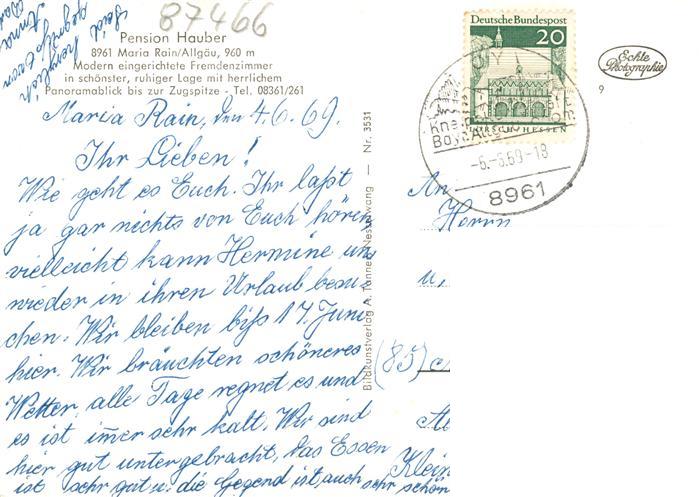 87466
Seid
herzlich
gegrüßt von
Anna
Pension Hauber
8961 Maria Rain/Allgäu, 960 m
Modern eingerichtete Fremdenzimmer
in schönster, ruhiger Lage mit herrlichem
Panoramablick bis zur Zugspitze - Tel. 08361/261
Maria Rain, den 4.6.69.
Ihr Lieben!
Wie geht es Euch. Ihr laßt
ja gar nichts von Euch hören
vielleicht kann Hermine un
wieder in ihren Urlaub besu-
chen. Wir bleiben biß 17. Juni
hier. Wir bräuchten schöneres
Wetter, alle Tage regnet es und
es ist imer sehr kalt. Wir sind
hier gut untergebracht, das Essen
ist sehr gut u. die Gegend ist auch sehr schön
Bildkunstverlag A. Tanner Nesselwang — Nr. 3531
Deutsche Bundespost
20
LORSCH/HESSEN
Bayr. Allg
-6.-6.69-18
8961
Echte
Photographie
9
An
Herrn
u,
(85)
Klein